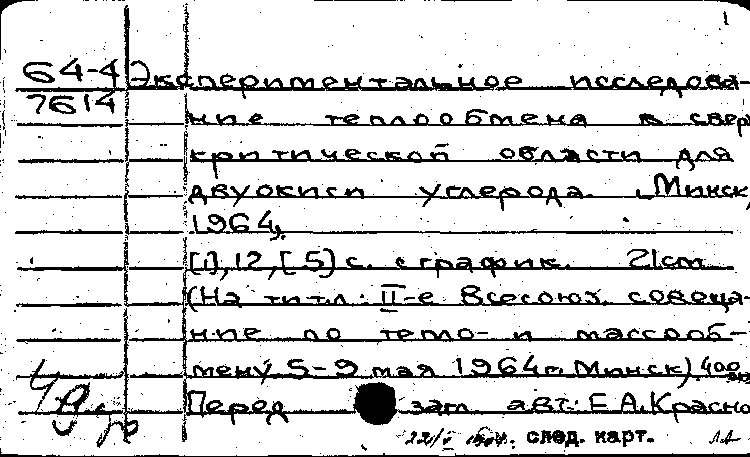 1
64-4 Экспериментальное исследова-
7614 ние теплообмена в сверх
критической области для
двуокиси углерода. Минск,
1964,
[1],12,[5]с. с график. 21см
(На титл: II-е Всесоюз. совеща-
ние по тепло- и массооб-
мену 5-9 мая 1964г. Минск). 400
Перед заг авт: Е.А.Красно
след. карт.